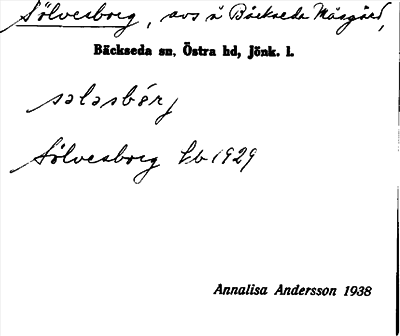 Sölvesborg, avs å Bäckseda Måsgård,
Bäckseda sn, Östra hd, Jönk. l.
sələsbörj
Sölvesborg kb 1929
Annalisa Andersson 1938